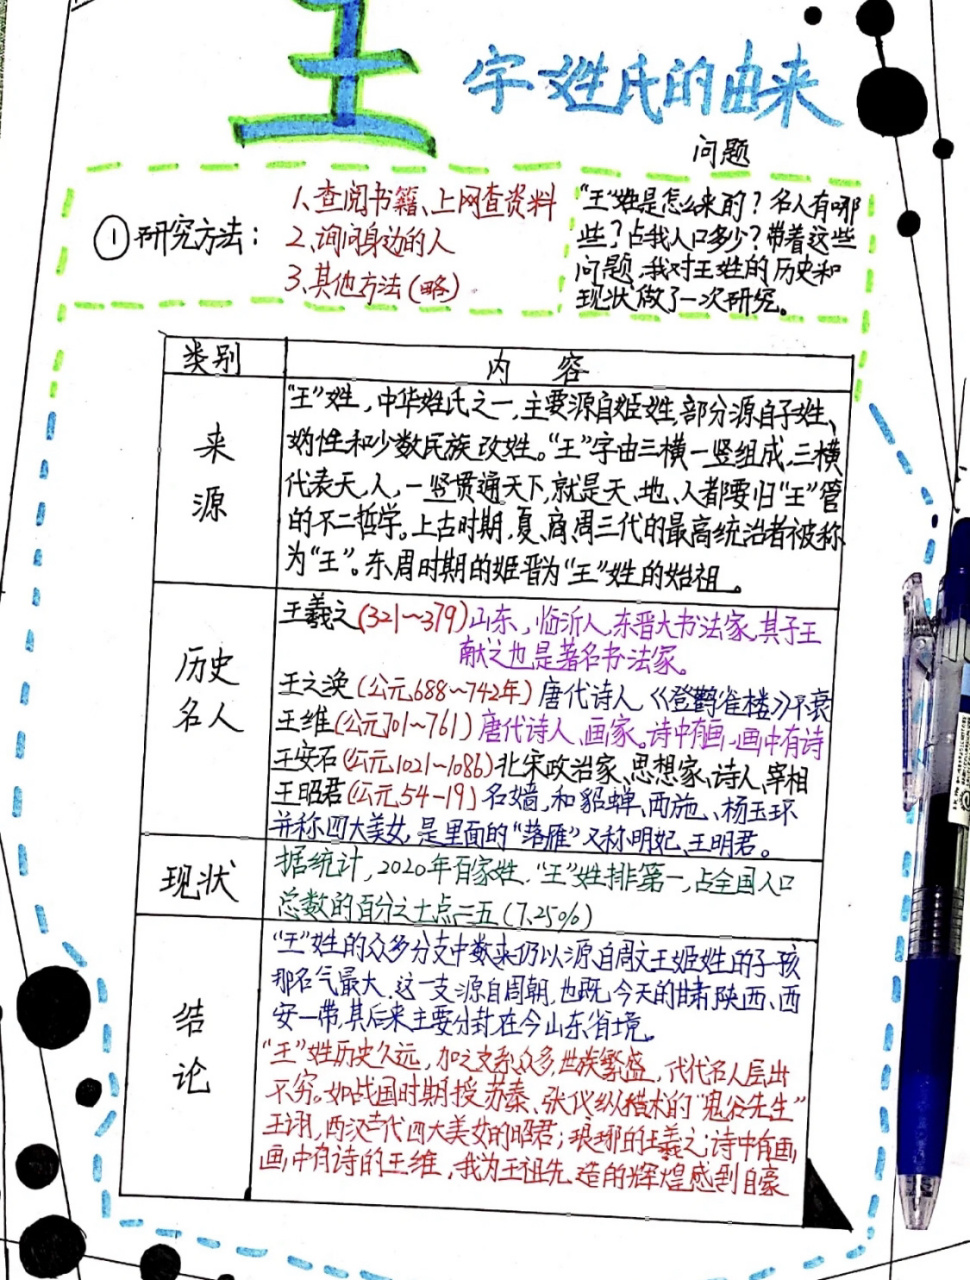 王
字姓氏的由来
问题
①研究方法：
1、查阅书籍、上网查资料
2、询问身边的人
3、其他方法（略）
"王"姓是怎么来的？名人有哪
些？占我人口多少？带着这些
问题，我对王姓的历史和
现状做了一次研究。
类别
内 容
来
源
"王"姓，中华姓氏之一，主要源自姬姓，部分源自子姓、
妫性和少数民族改姓。"王"字由三横一竖组成，三横
代表天，人，一竖贯通天下，就是天、地、人都要归"王"管
的不二哲学。上古时期，夏、商、周三代的最高统治者被称
为"王"。东周时期的姬晋为"王"姓的始祖。
历史
名人
王羲之（321～379）山东，临沂人，东晋大书法家，其子王
献之也是著名书法家。
王之涣（公元688～742年）唐代诗人《登鹳雀楼》不衰
王维（公元701～761）唐代诗人、画家。诗中有画，画中有诗
王安石（公元1021～1086）北宋政治家、思想家、诗人、宰相
王昭君（公元54－19）名嫱，和貂蝉、西施、杨玉环
并称四大美女，是里面的"落雁"又称明妃、王明君。
现状
据统计，2020年百家姓，"王"姓排第一，占全国人口
总数的百分之七点二五（7.25%）
结
论
"王"姓的众多分支中数来仍以源自周文王姬姓的子孩
那名气最大，这一支源自周朝，也既今天的甘肃、陕西、西
安一带，其后来主要分封在今山东省境。
"王"姓历史久远，加之支系众多，世族繁盛，代代名人层出
不穷。如战国时期授苏秦、张仪纵横术的"鬼谷先生"
王诩，两汉古代四大美女的昭君；琅琊的王羲之；诗中有画，
画中有诗的王维，我为王祖先造的辉煌感到自豪